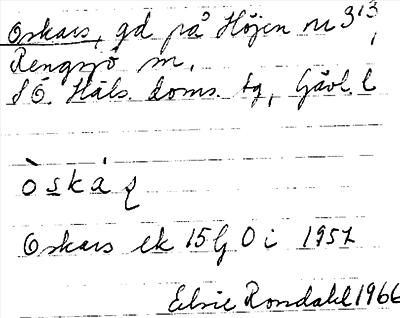 Oskars, gd på Höjen nr 3¹³,
Rengsjö sn,
S Ö. Häls. doms. tg, Gävl. l
òskáʂ
Oskars ek 15G 0 i 1957
Elsie Rondahl 1966